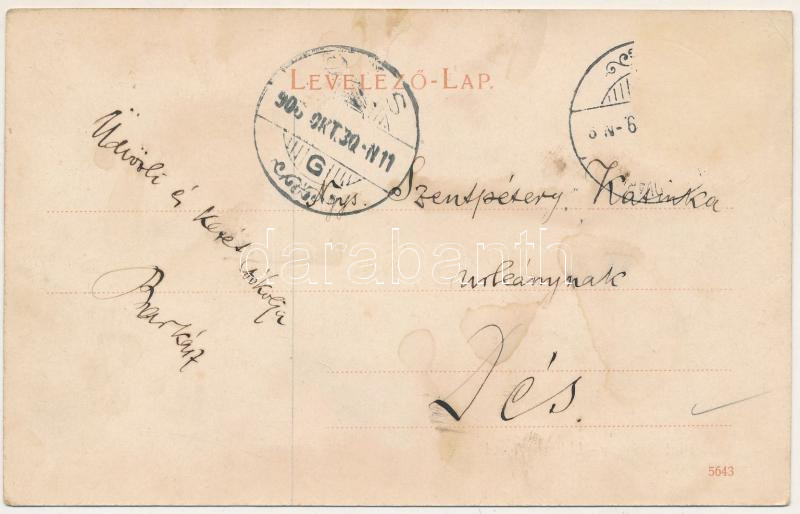 LEVELEZŐ-LAP.
DÉS
906 OKT. 30.-N11
G
8 N-6
Üdvözli és kezét csókolja
Barkász
Ngys. Szentpétery Katinka
urleánynak
Dés.
darabanth
5643